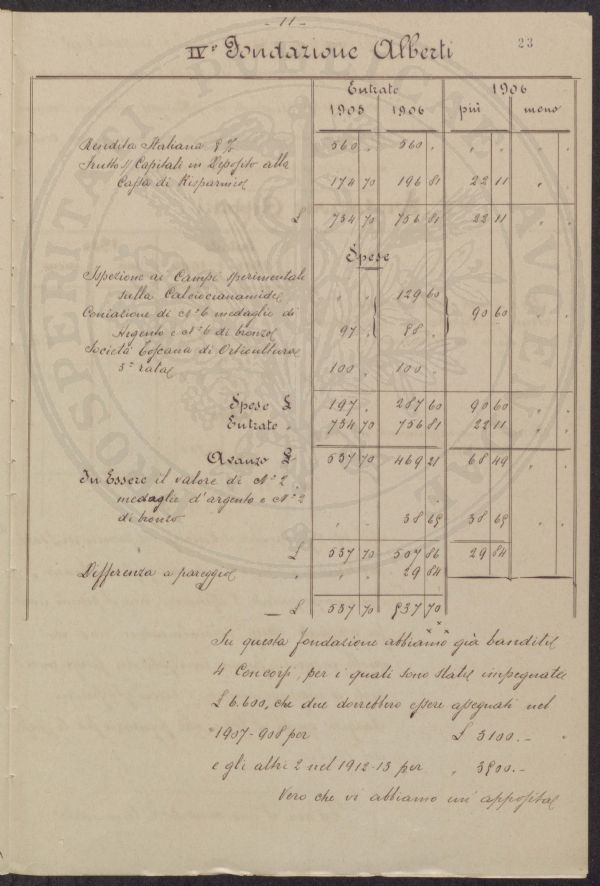 - 11 -
23
IVº Fondazione Alberti
Entrate 1906
1905 1906 più meno
Rendita Italiana 560 „ 560 „ „ „ „ „
Frutto s/ Capitali in Deposito alla
Cassa di Risparmio 174 70 196 81 22 11 „ „
£ 734 70 756 81 22 11 „ „
Spese
Ispezione ai Campi sperimentali
sulla Calciocianamide „ „ 129 60
Coniazione di Nº 6 medaglie di 90 60 „ „
Argento e Nº 6 di bronzo 97 „ 88 „
Società Toscana di Orticultura
3ª rata 100 „ 100 „
Spese £ 197 „ 287 60 90 60 „ „
Entrate „ 734 70 756 81 22 11 „ „
Avanzo £ 537 70 469 21 68 49 „ „
In Essere il valore di Nº 2
medaglie d'argento e Nº 2
di bronzo „ „ 38 65 38 65 „ „
£ 537 70 507 86 29 84
Differenza a pareggio „ „ „ 29 84
£ 537 70 537 70
In questa fondazione abbiamo già bandite
4 Concorsi, per i quali sono state impegnate
£ 6.600, che due dovrebbero essere assegnati nel
1907-908 per £ 3100.- „
e gli altri 2 nel 1912-13 per „ 3500.-
Vero che vi abbiamo un' apposita